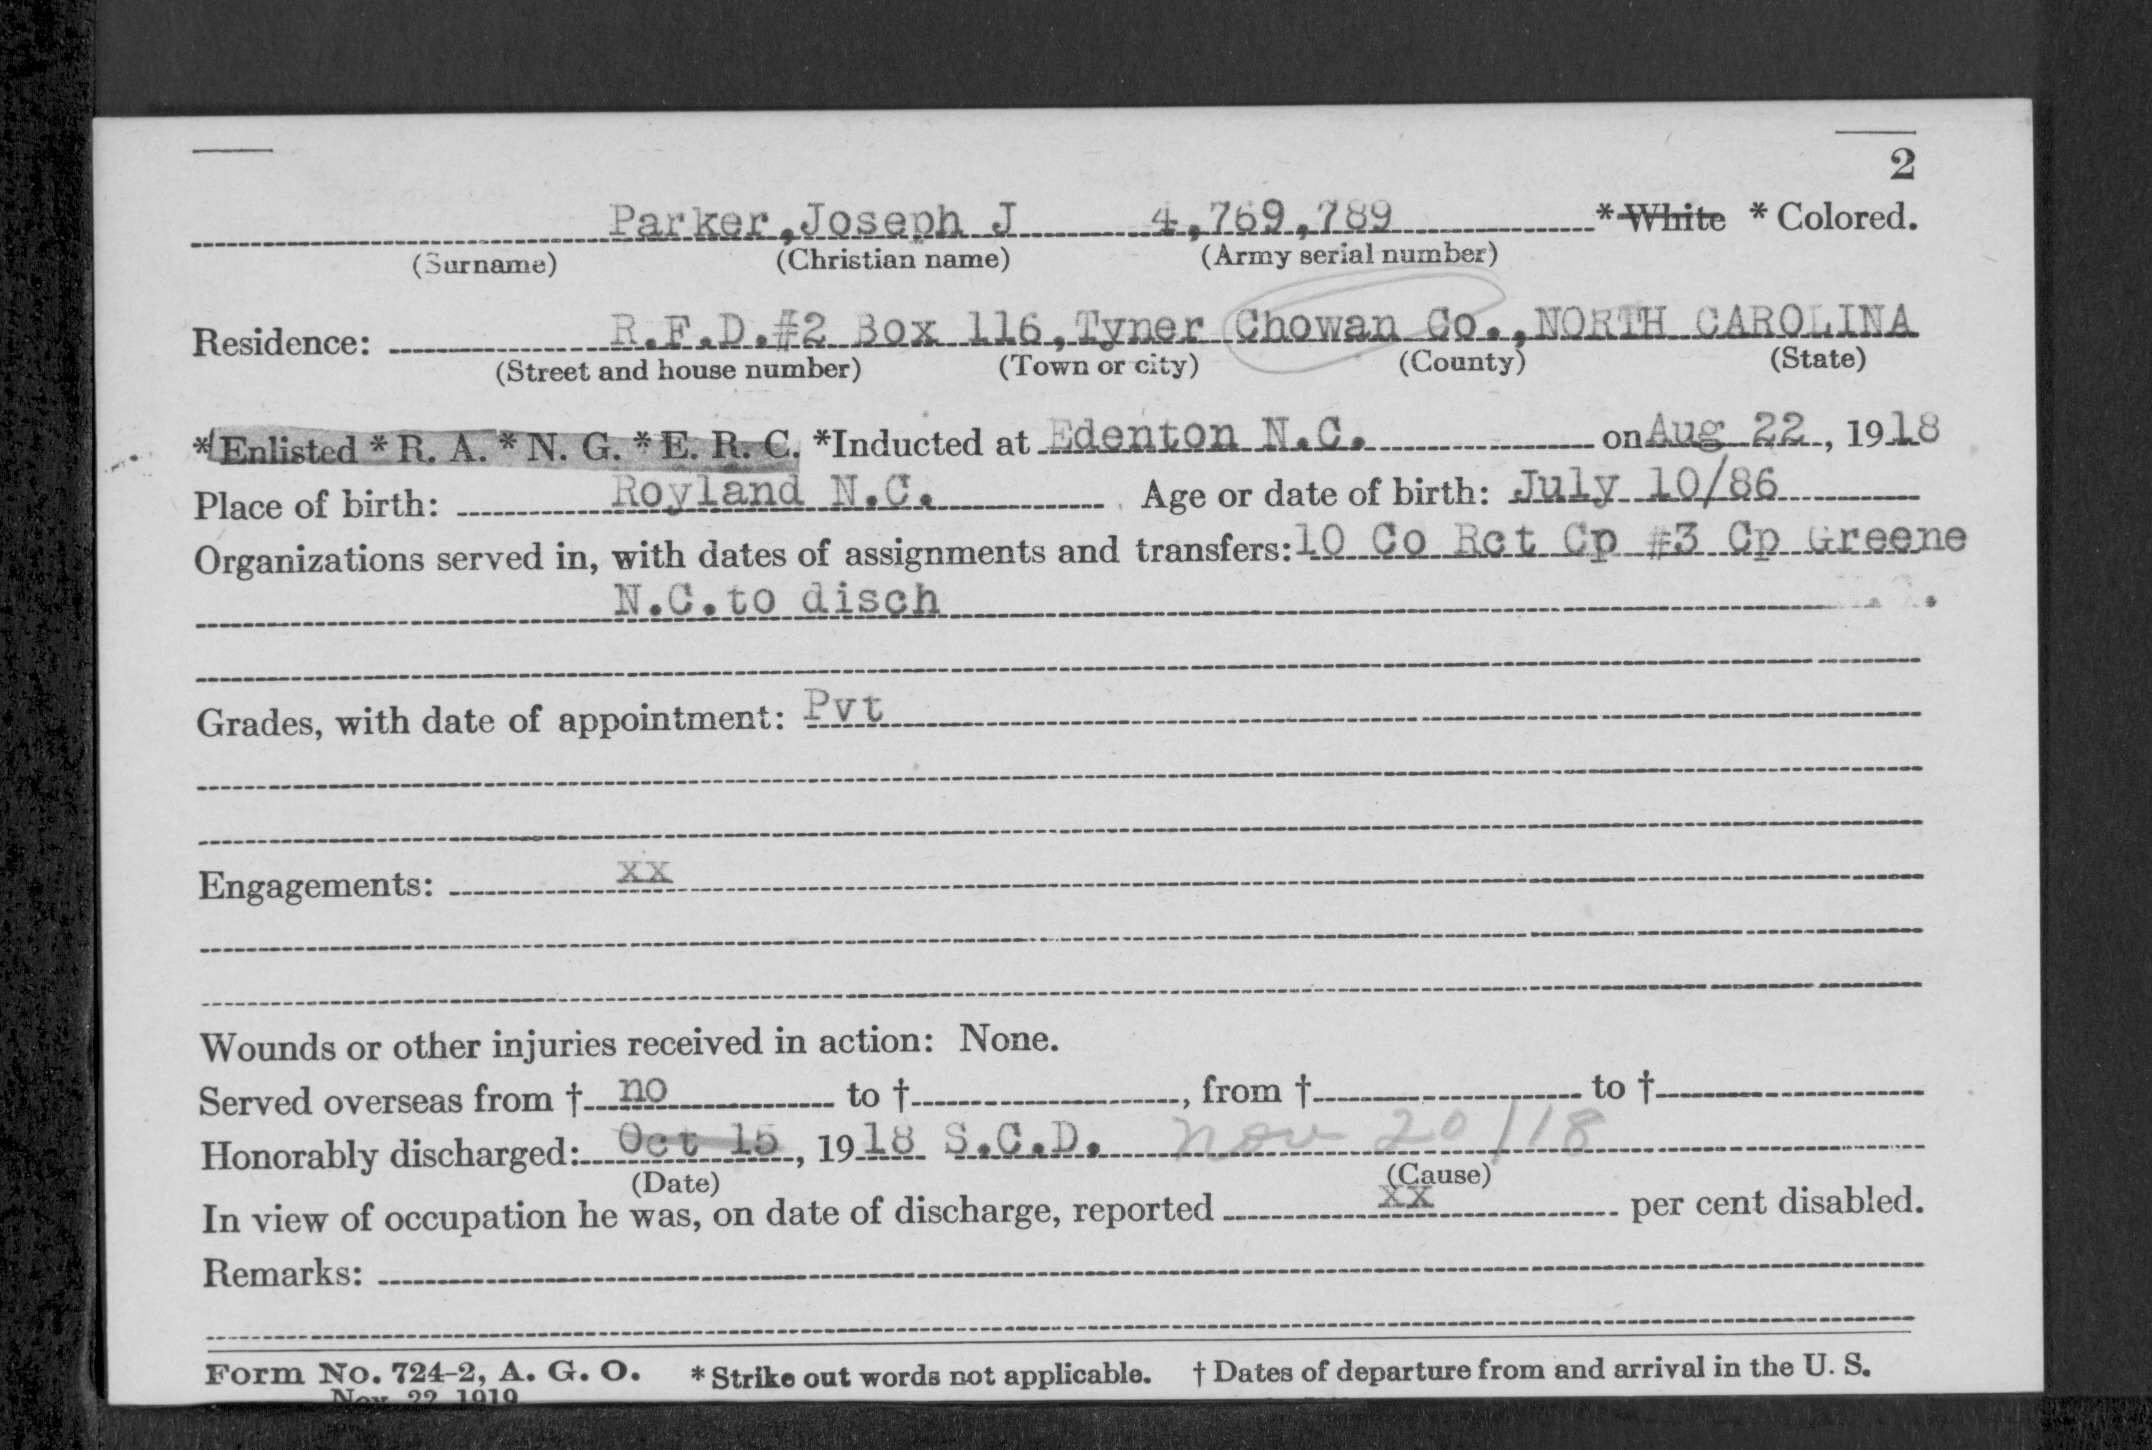 2
Parker, Joseph J 4,769,789 * White * Colored.
(Surname) (Christian name) (Army serial number)
Residence: R.F.D.#2 Box 116, Tyner Chowan Co., NORTH CAROLINA
(Street and house number) (Town or city) (County) (State)
* Enlisted * R. A. * N. G. * E. R. C. *Inducted at Edenton N.C. on Aug 22, 1918
Place of birth: Royland N.C. Age or date of birth: July 10/86
Organizations served in, with dates of assignments and transfers: 10 Co Rct Cp #3 Cp Greene
N.C. to disch
Grades, with date of appointment: Pvt
Engagements: xx
Wounds or other injuries received in action: None.
Served overseas from † no to †, from † to †
Honorably discharged: Oct 15, 1918 S.C.D. Nov 20/18
(Date) (Cause)
In view of occupation he was, on date of discharge, reported xx per cent disabled.
Remarks:
Form No. 724-2, A. G. O. * Strike out words not applicable. † Dates of departure from and arrival in the U. S.
Nov. 22, 1919